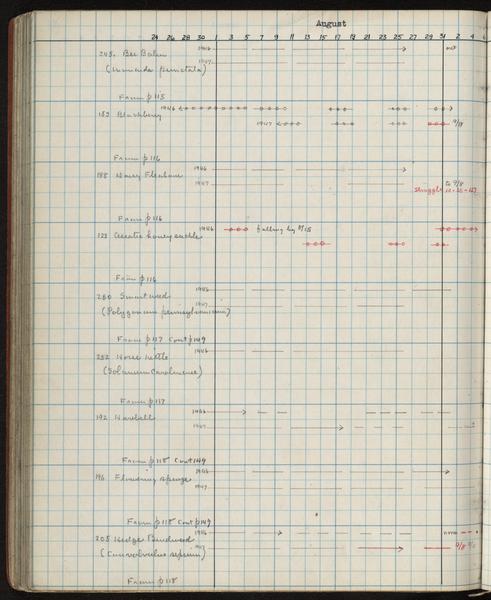 August
24 26 28 30 1 3 5 7 9 11 13 15 17 19 21 23 25 27 29 31 2 4
245. Bee Balm 1946 out
1947
(monarda punctata)
From p 115
153 Blackberry 1946
1947 9/18
From p 116
188 Daisy Fleabane 1946
1947 to 9/8
struggle
From p 116
123 Asiatic honeysuckle 1946 falling by 8/15
From p 116
250 Smartweed 1946
(Polygonum pennsylvanicum) 1947
From p 117 Cont p 149
252 Horse Nettle 1946
(Solanum Carolinense)
From p 117
192 Harebell 1946
1947
From p 118 Cont 149
196 Flowering spurge 1946
1947
From p 118 Cont p 149
205 Hedge Bindweed 1946
(Convolvulus sepium) 9/8
From p 118